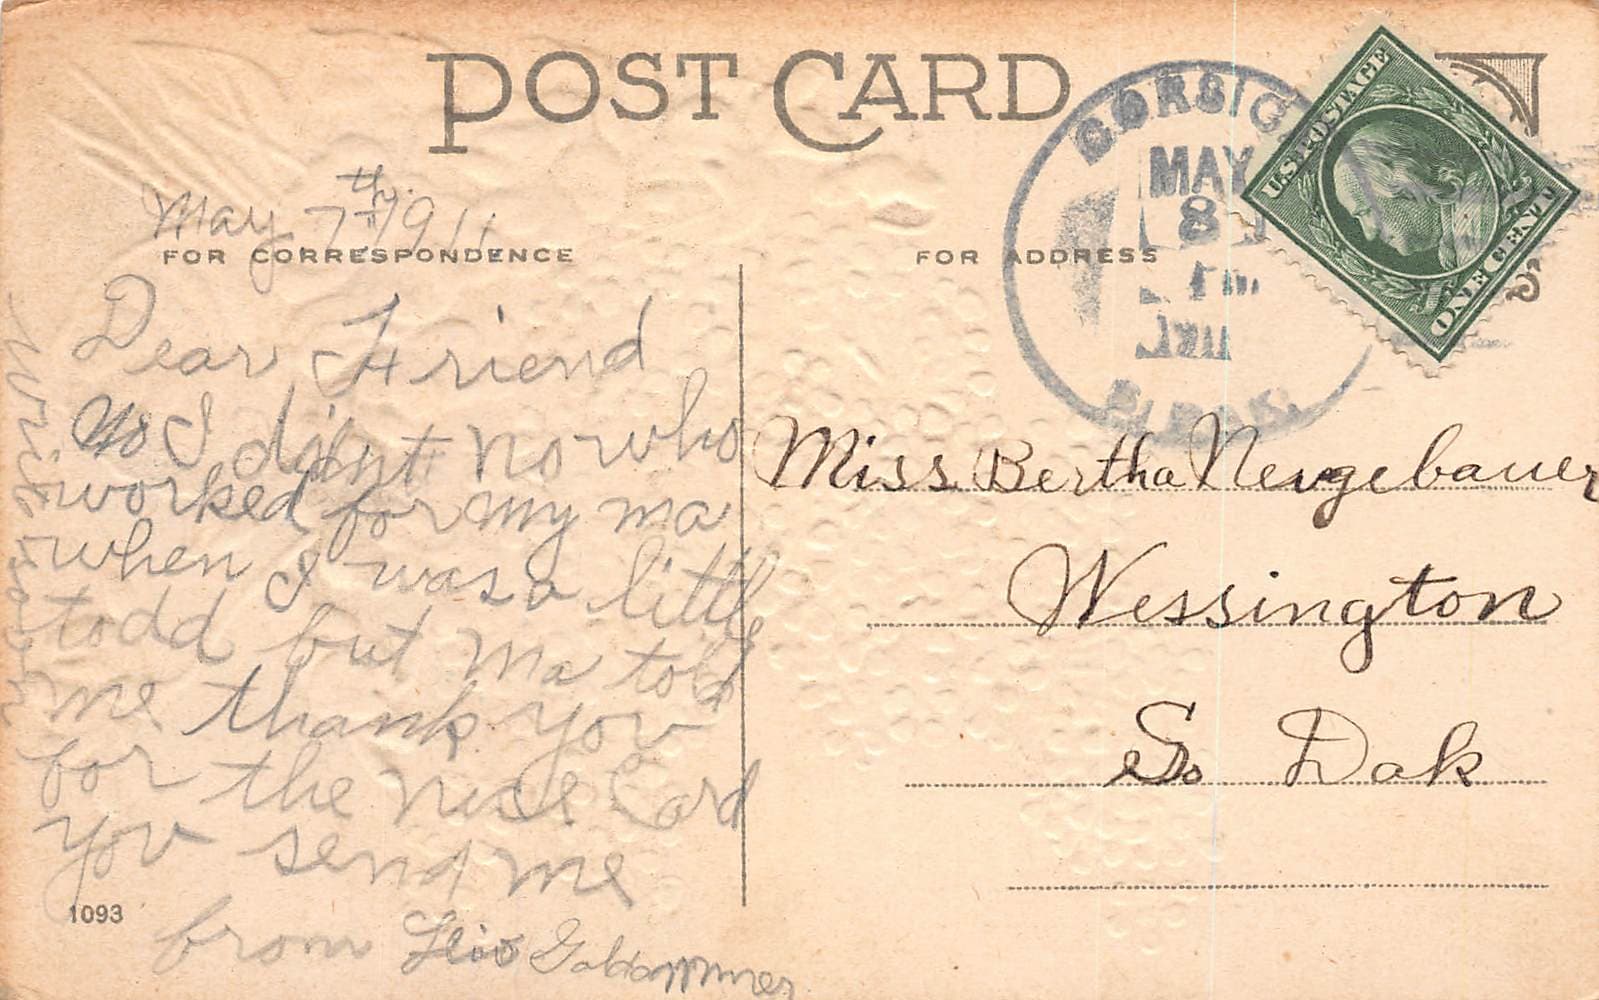 POST CARD
CORSICA
MAY
8
S. DAK.
U.S. POSTAGE
ONE CENT
May 7th 1911
FOR CORRESPONDENCE
FOR ADDRESS
Dear Friend
No I didnt no who
worked for my ma
when I was a little
todd but Ma told
me thank you
for the nice Card
you send me
from
1093
write soon
Miss Bertha Neugebauer
Wessington
So Dak